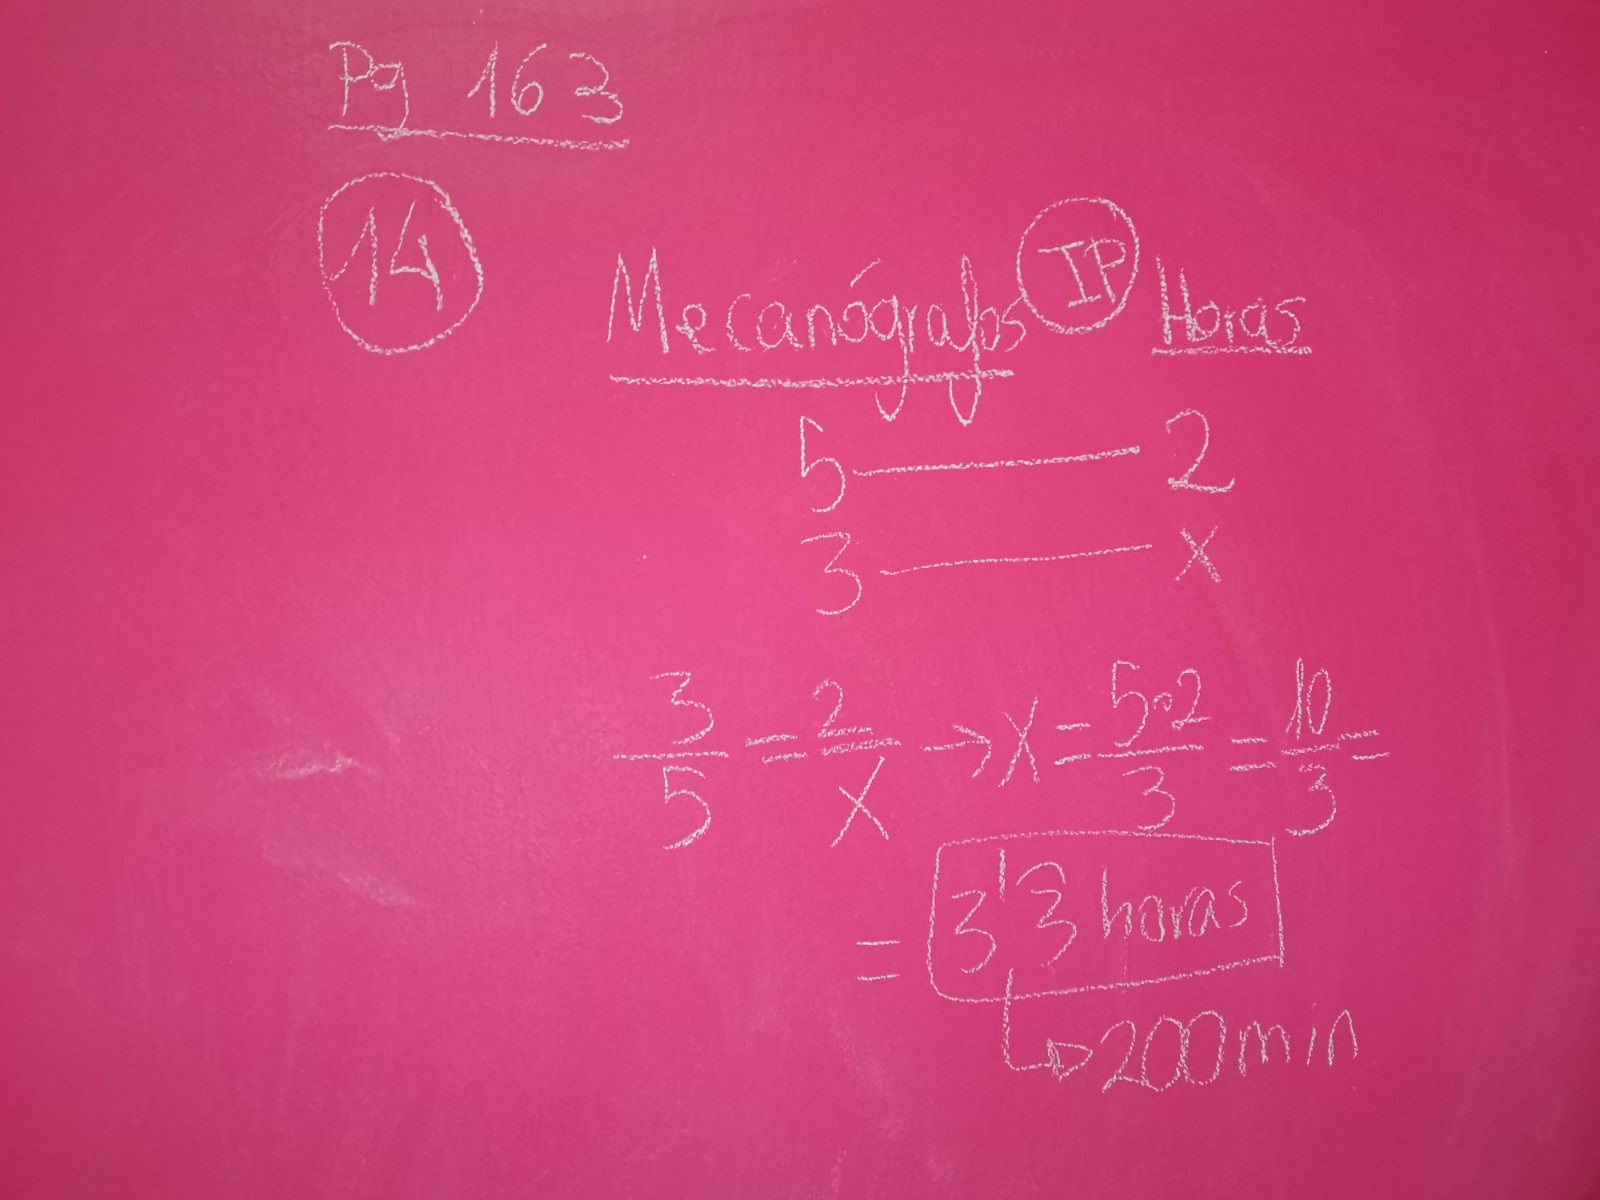 Pg 163
14
Mecanógrafos IP Horas
5 — 2
3 — x
3/5 = 2/x → x = 5·2/3 = 10/3 =
= 3'3 horas
↳ 200 min